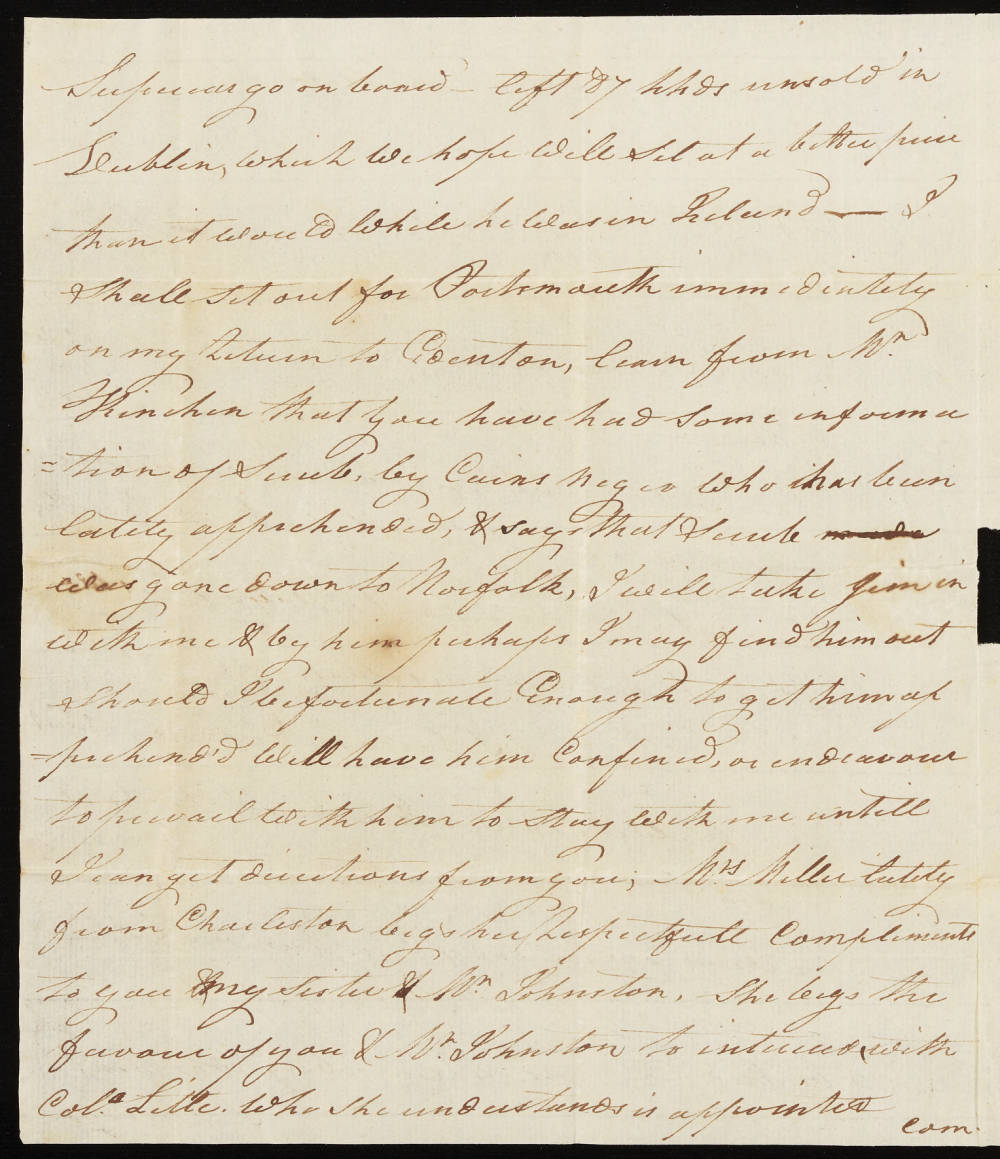 Supercargo on board – left 87 hhds unsold in
Dublin, which we hope will sel at a better price
than it would while he was in Ireland — I
shall set out for Portsmouth immediately
on my return to Edenton, learn from Mr
Kinchen that you have had some informa
=tion of Scrub, by Cains Negro who has been
lately apprehended, & says that Scrub made
was gone down to Norfolk, I will take Jim in
with me & by him perhaps I may find him out
should I be fortunate Enough to get him ap
=prehend'd will have him Confined, or endeavour
to prevail with him to stay with me untill
I can get directions from you; Mrs Miller lately
from Charleston begs her respectfull Compliments
to you & my sister & Mr Johnston, she begs the
favour of you & Mr Johnston to interced with
Colo Lillie. who she understands is appointed
com-